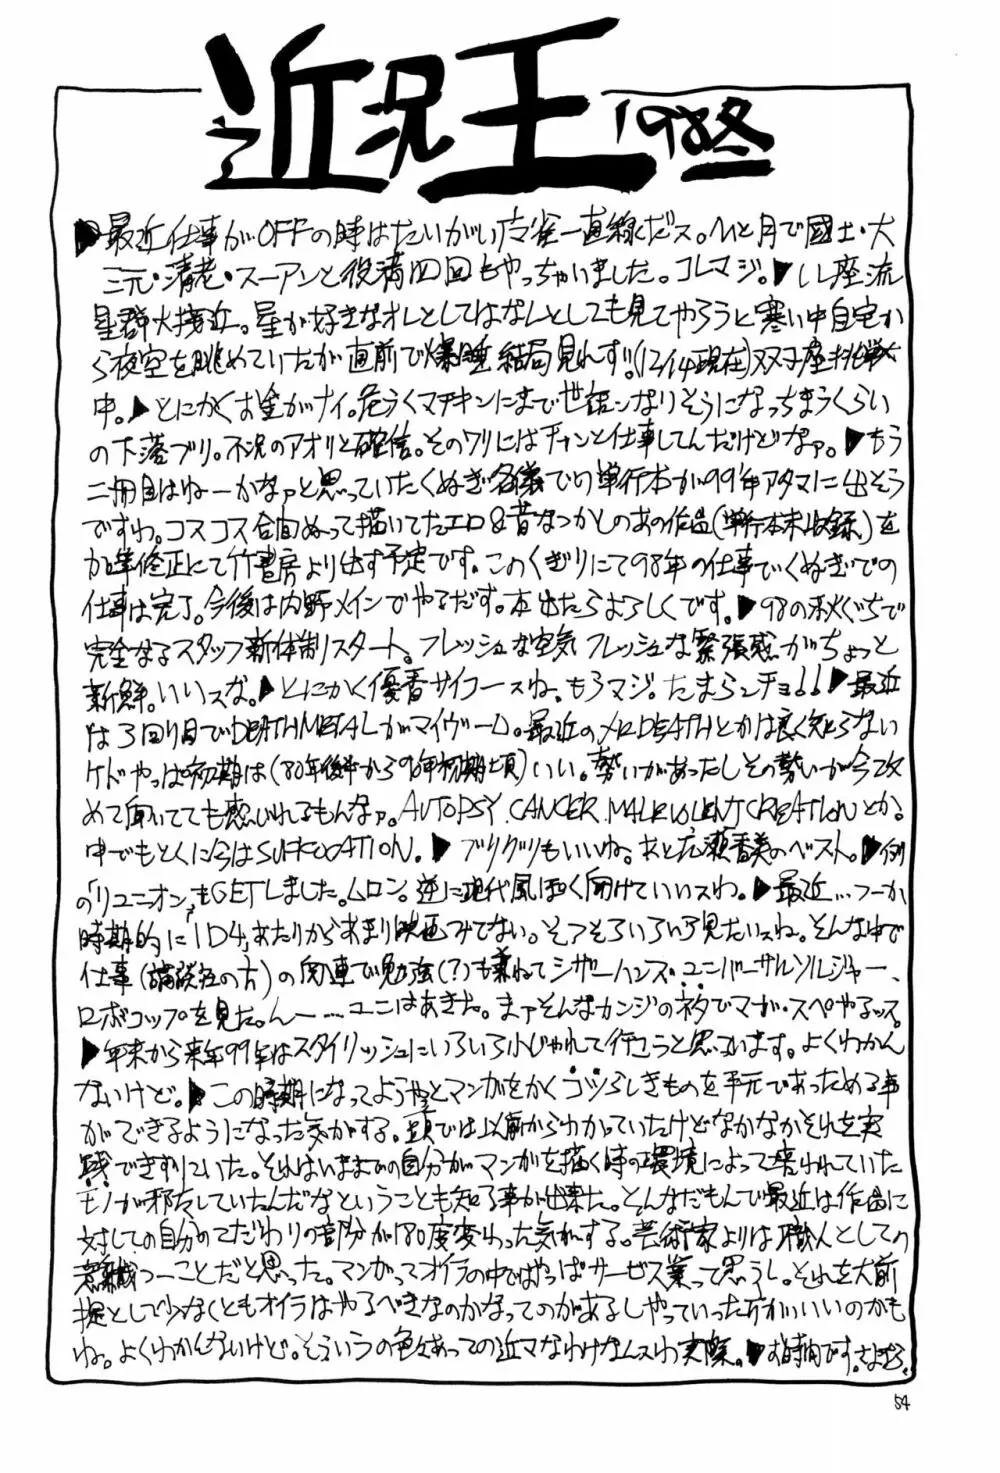 近況王 '98冬
▶最近仕事がOFFの時はたいがい麻雀一直線だス。ひと月で國士・大
三元・清老・スーアンと役満四回もやっちゃいました。コレマジ。▶しし座流
星群大接近。星が好きなオレとしてはなんとしても見てやろうと寒い中自宅か
ら夜空を眺めていたが直前で爆睡 結局見れず!!(12/14現在)双子座挑戦
中。▶とにかくお金がナイ。危うくマチキンにまで世話ンなりそうになっちまうくらい
の下落ブリ。不況のアオリと確信。そのワリにはチャンと仕事してんだけどなァ。▶もう
二冊目はねーかなァと思っていたくぬぎ名義での単行本が99年アタマに出そう
ですわ。コスコス合間ぬって描いてたエロ&昔なつかしのあの作品(単行本未収録)を
加筆修正にて竹書房より出す予定です。このくぎりにて98年の仕事でくぬぎでの
仕事は完了。今後は内野メインでやるだす。本出たらよろしくです。▶98の秋ぐちで
完全なるスタッフ新体制スタート。フレッシュな空気 フレッシュな緊張感がちょっと
新鮮。いいスな。▶とにかく優香サイコースね。もうマジ。たまらンチョ!! ▶最近
は3回り目でDEATHMETALがマイヴーム。最近のメロDEATHとかは良く知らない
ケドやっぱ初期は(80年後半から90年初期頃)いい。勢いがあったしその勢いが今改
めて聞いてても感じいれるもんなァ。AUTOPSY.CANCER.MALEVOLENTCREATIONとか。
中でもとくに今はSUFFOCATION。▶ブリグリもいいね。あと広瀬香美のベスト。▶例
の「リユニオン」もGETしました。ムロン。逆に現代風ぽく聞けていいスわ。▶最近…つーか
時期的に「ID4」あたりからあまり映画みてない。そろそろいろいろ見たいスね。そんな中で
仕事(講談社の方)の関連で勉強(?)も兼ねてシザーハンズ・ユニバーサルソルジャー、
ロボコップを見た。んー…ユニはあきた。まァそんなカンジのネタでマガ・スペやるッス。
▶年末から来年99年はスタイリッシュにいろいろ小じゃれて行こうと思っています。よくわかん
ないけど。▶この時期になってようやくマンガをかくコツらしきものを手元であっためる事
ができるようになった気がする。頭では以前からわかっていたけどなかなかそれを実
践できずにいた。それはいままでの自分がマンガを描く時の環境によって培われていた
モノが邪魔していたんだなということも知る事が出来た。とんなだもんで最近は作品に
対しての自分のこだわりの部分が180度変わった気がする。芸術家よりは職人としての
意識つーことだと思った。マンガってオイラの中ではやっぱサービス業って思うし。それを大前
提として少なくともオイラはやるべきなのかなってのがあるしやっていった方がいいのかも
ね。よくわかんないけど。そういうの色々あっての近マなわけなんスわ実際。▶お時間です。さよなら。
54